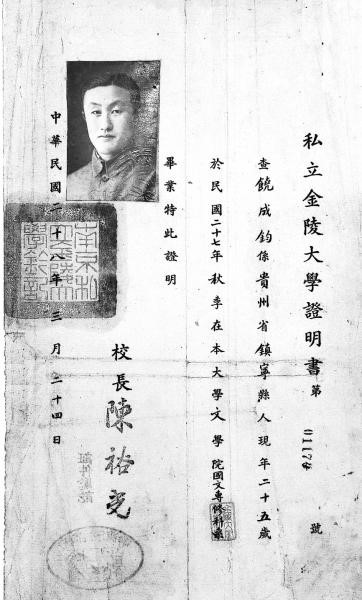 私立金陵大學證明書 第 01178 號
查饒成鈞係貴州省鎮寧縣人現年二十五歲
於民國二十七年秋季在本大學文學院國文專修科
畢業特此證明
校長陳裕光
中華民國二十八年三月二十四日